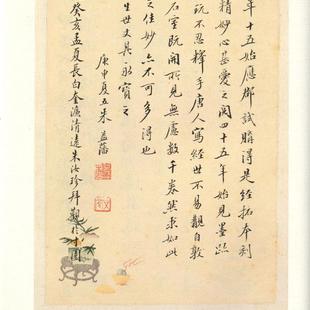 年十五始應鄉試購得是經拓本刻
精妙心甚愛之閱四十五年始見墨跡
玩不忍釋手唐人寫經世不易觀自敦
石室既開所見無慮數千卷然求如此
之佳妙亦不可多得也
生世丈其永寶之
庚申夏五朱益藩
癸亥孟夏長白奎濂清遠朱汝珍拜觀於